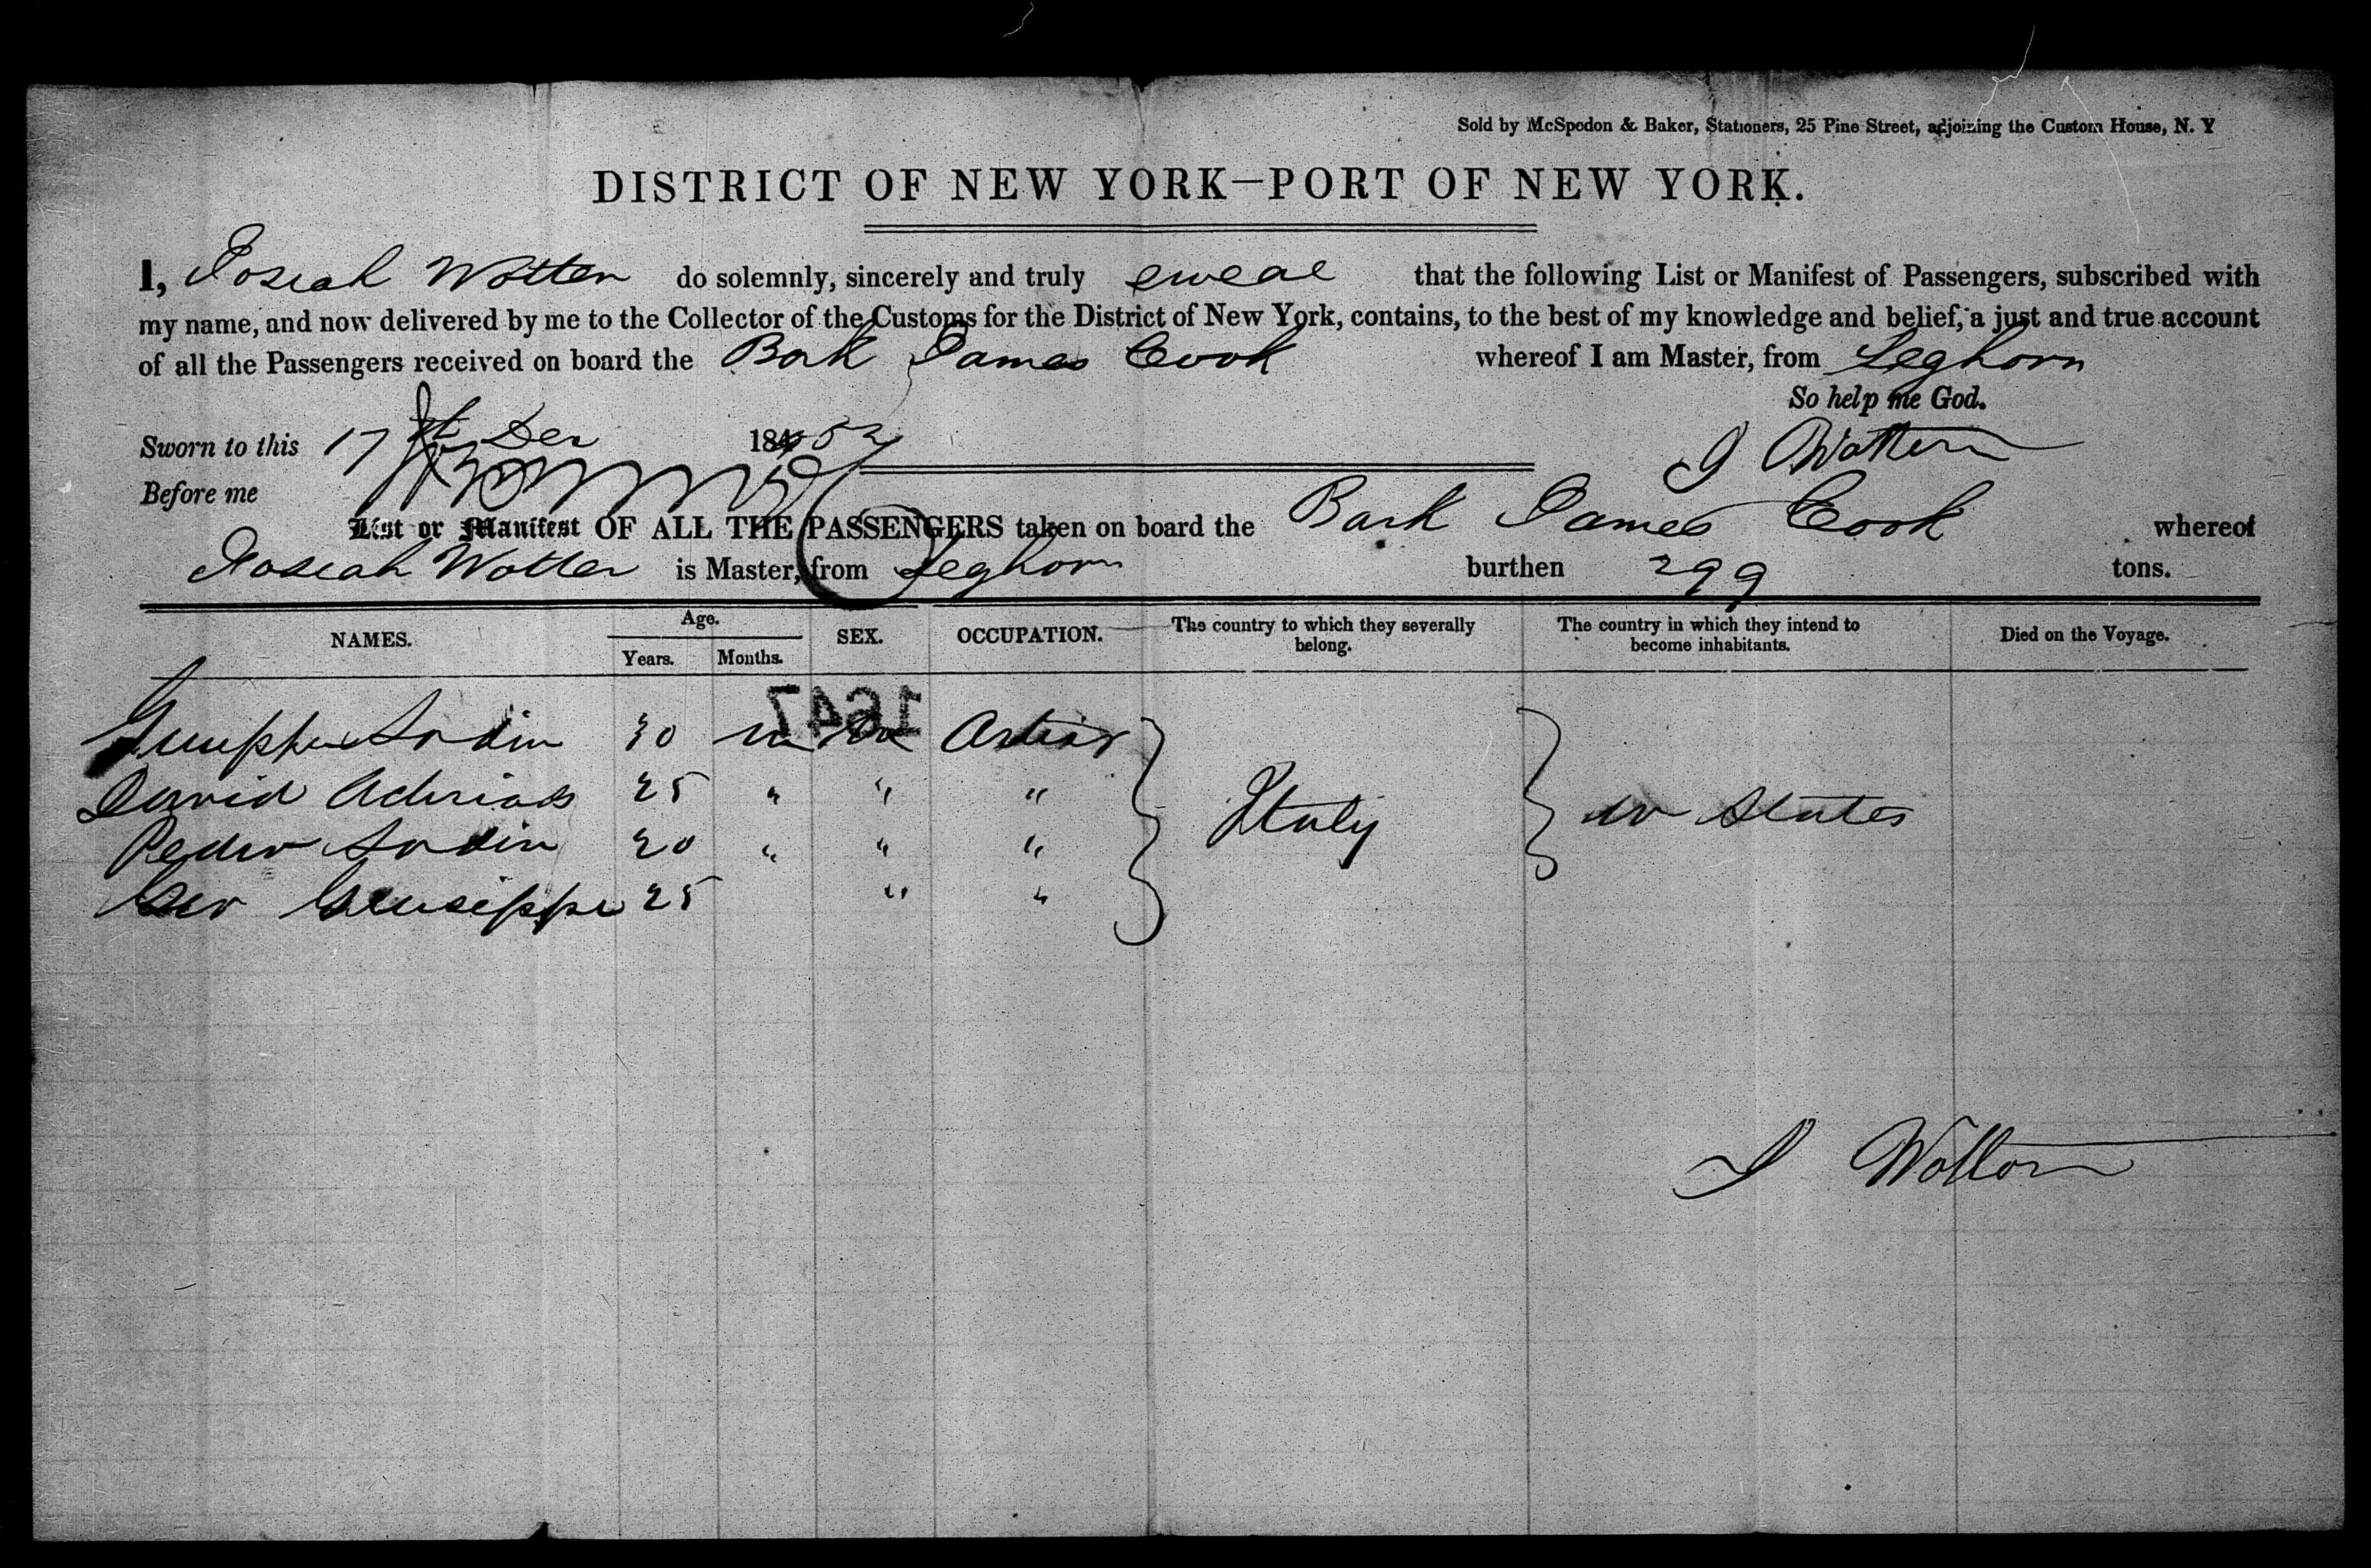 Sold by McSpedon & Baker, Stationers, 25 Pine Street, adjoining the Custom House, N. Y
DISTRICT OF NEW YORK—PORT OF NEW YORK.
I, Josiah Wotten do solemnly, sincerely and truly swear that the following List or Manifest of Passengers, subscribed with
my name, and now delivered by me to the Collector of the Customs for the District of New York, contains, to the best of my knowledge and belief, a just and true account
of all the Passengers received on board the Bark James Cook whereof I am Master, from Leghorn
So help me God.
Sworn to this 17 Dec 1852 J Wotten
Before me
List or Manifest OF ALL THE PASSENGERS taken on board the Bark James Cook whereof
Josiah Wotten is Master, from Leghorn burthen 299 tons.
NAMES. Age. Years. Months. SEX. OCCUPATION. The country to which they severally belong. The country in which they intend to become inhabitants. Died on the Voyage.
1647
30
David 25 " " "
Pedro 20 " " " Italy States
Giuseppe 25 " "
J Wotton